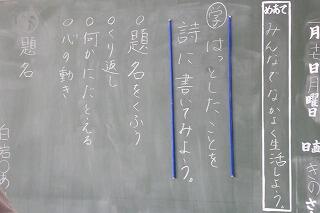 めあて
みんなでなかよく生活しよう。
学 はっとしたことを
詩に書いてみよう。
○題名をくふう
○くり返し
○何かにたとえる
○心の動き
題名